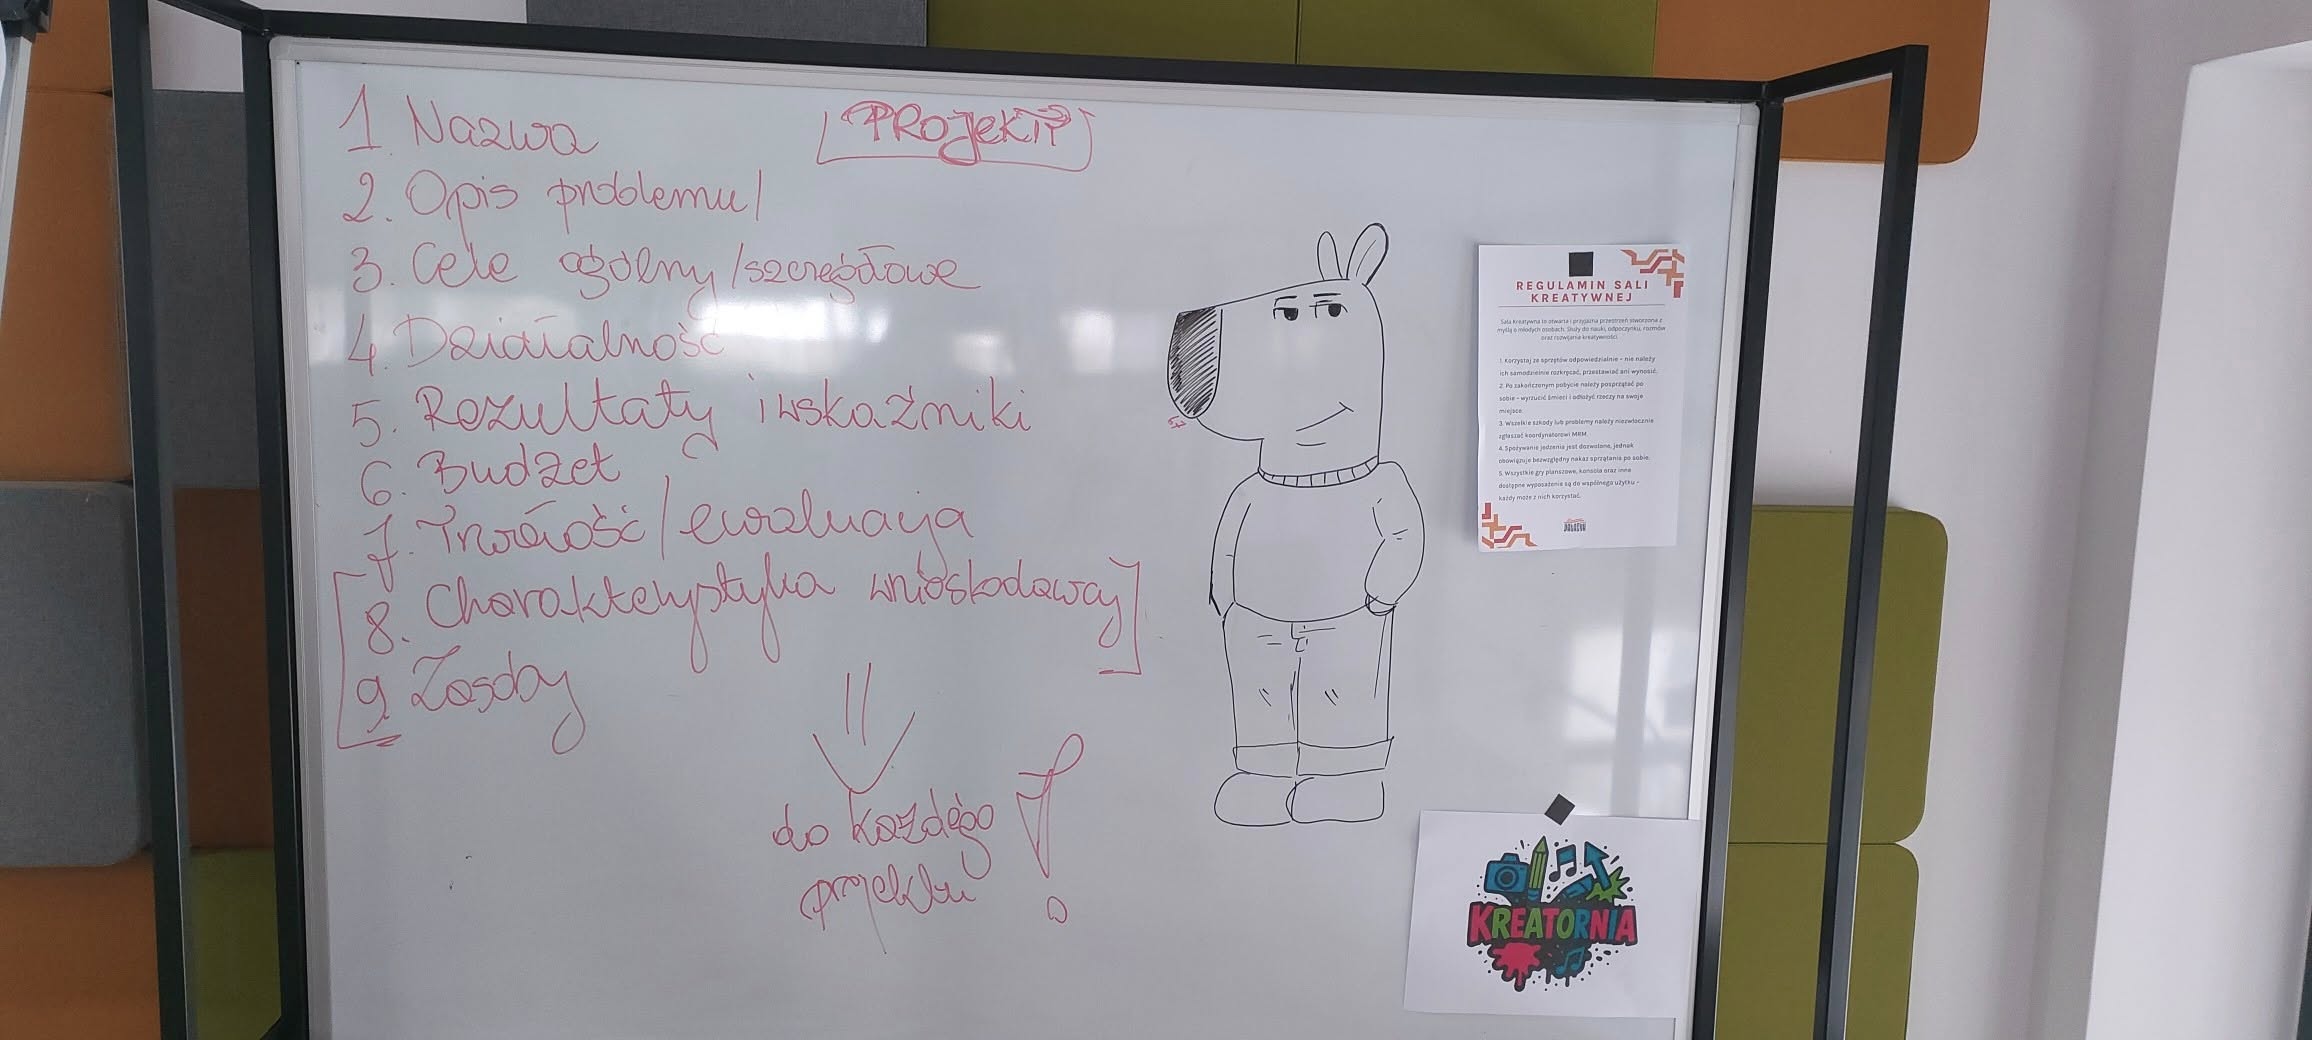 PROJEKTY
1. Nazwa
2. Opis problemu/
3. Cele ogólny/szczegółowe
4. Działalność
5. Rezultaty i wskaźniki
6. Budżet
7. Trwałość/ewaluacja
8. Charakterystyka wnioskodawcy
9. Zasoby
do każdego
projektu
REGULAMIN SALI
KREATYWNEJ
Sala kreatywna to otwarta i przyjazna przestrzeń stworzona z
myślą o młodych osobach. Służy do nauki, odpoczynku, rozmów
oraz rozwijania kreatywności.
1. Korzystaj ze sprzętów odpowiedzialnie – nie należy
ich samodzielnie rozkręcać, przestawiać ani wynosić.
2. Po zakończonym pobycie należy posprzątać po
sobie – wyrzucić śmieci i odłożyć rzeczy na swoje
miejsce.
3. Wszelkie szkody lub problemy należy niezwłocznie
zgłaszać koordynatorowi MRM.
4. Spożywanie jedzenia jest dozwolone, jednak
obowiązuje bezwzględny nakaz sprzątania po sobie.
5. Wszystkie gry planszowe, konsola oraz inne
dostępne wyposażenie są do wspólnego użytku –
każdy może z nich korzystać.
KREATORNIA